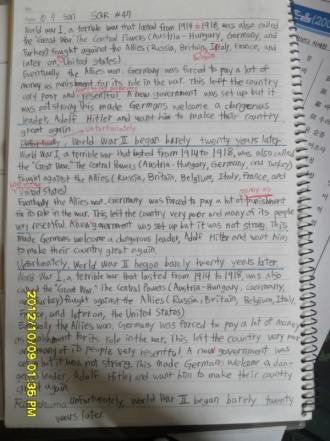 SGR #47
World War I, a terrible war that lasted from 1914 to 1918, was also called
the "Great War." The Central Powers (Austria-Hungary, Germany, and
Turkey) fought against the Allies (Russia, Britain, Italy, France, and
later on, United States)
Belgium
Eventually the Allies won. Germany was forced to pay a lot of
money as punishment for its role in the war. This left the country
very poor and resentful. A new government was set up but it
was not strong. This made Germans welcome a dangerous
leader, Adolf Hitler and want him to make their country
great again.
Unfortunately
World War II began barely twenty years later
World War I, a terrible war that lasted from 1914 to 1918, was also called
the "Great War." The Central Powers (Austria-Hungary, Germany, and Turkey)
fought against the Allies (Russia, Britain, Belgium, Italy, France, and
United States)
Eventually the Allies won, Germany was forced to pay a lot of punishment
money as
for its role in the war. This left the country very poor and many of its people
very resentful. A new government was set up but it was not strong. This
made Germans welcome a dangerous leader, Adolf Hitler and want him
to make their country great again.
World War II began barely twenty years later.
World War I, a terrible war that lasted from 1914 to 1918, was also
called the "Great War." The Central Powers (Austria-Hungary, Germany,
Turkey) fought against the Allies (Russia, Britain, Belgium, Italy,
France, and later on, the United States)
Eventually the Allies won, Germany was forced to pay a lot of money
as punishment for its role in the war. This left the country very poor
many of its people very resentful. A new government was
but it was not strong. This made Germans welcome a
leader, Adolf Hitler and want him to make their country
again
World War II began barely twenty
years later.
2012/10/09 01:35 PM